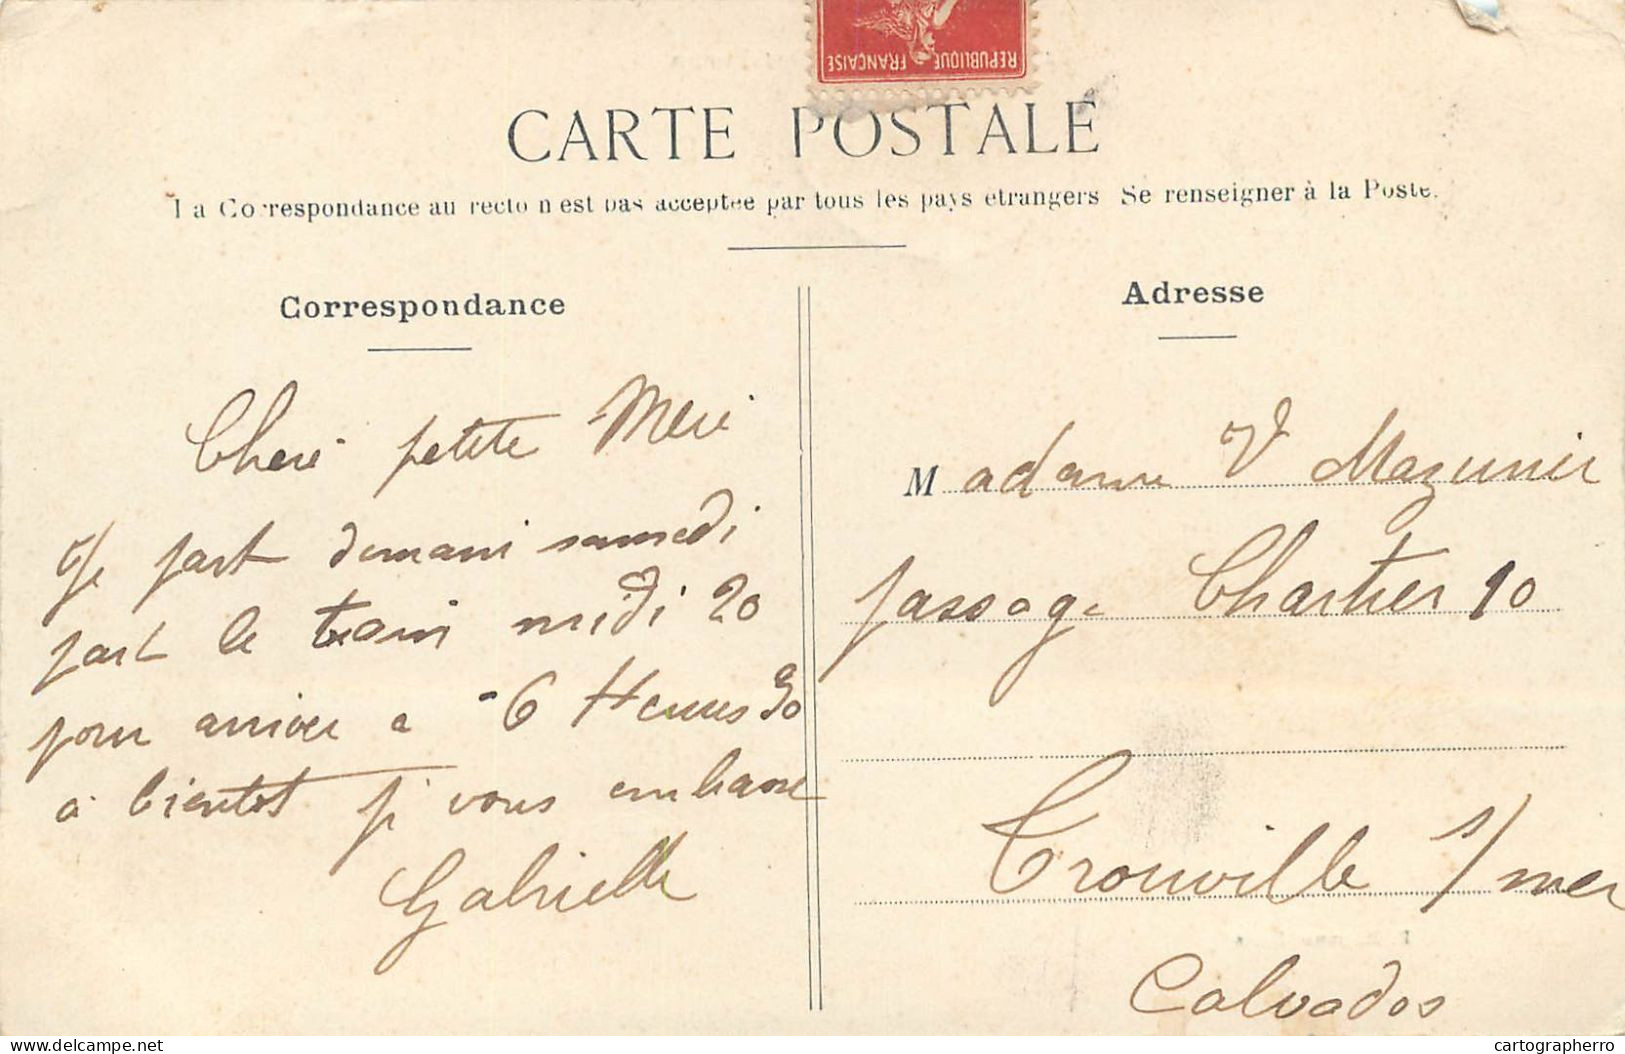 REPUBLIQUE FRANÇAISE
CARTE POSTALE
La Correspondance au recto n'est pas acceptée par tous les pays étrangers Se renseigner à la Poste.
Correspondance
Cheri petite Mere
Je part demain samedi
part le train midi 20
pour arriver a 6 Heures 30
a bientot je vous embrasse
Gabrielle
Adresse
Madame V Mezunier
passage Chartier 10
Trouville s/mer
Calvados
delcampe.net
cartographerro